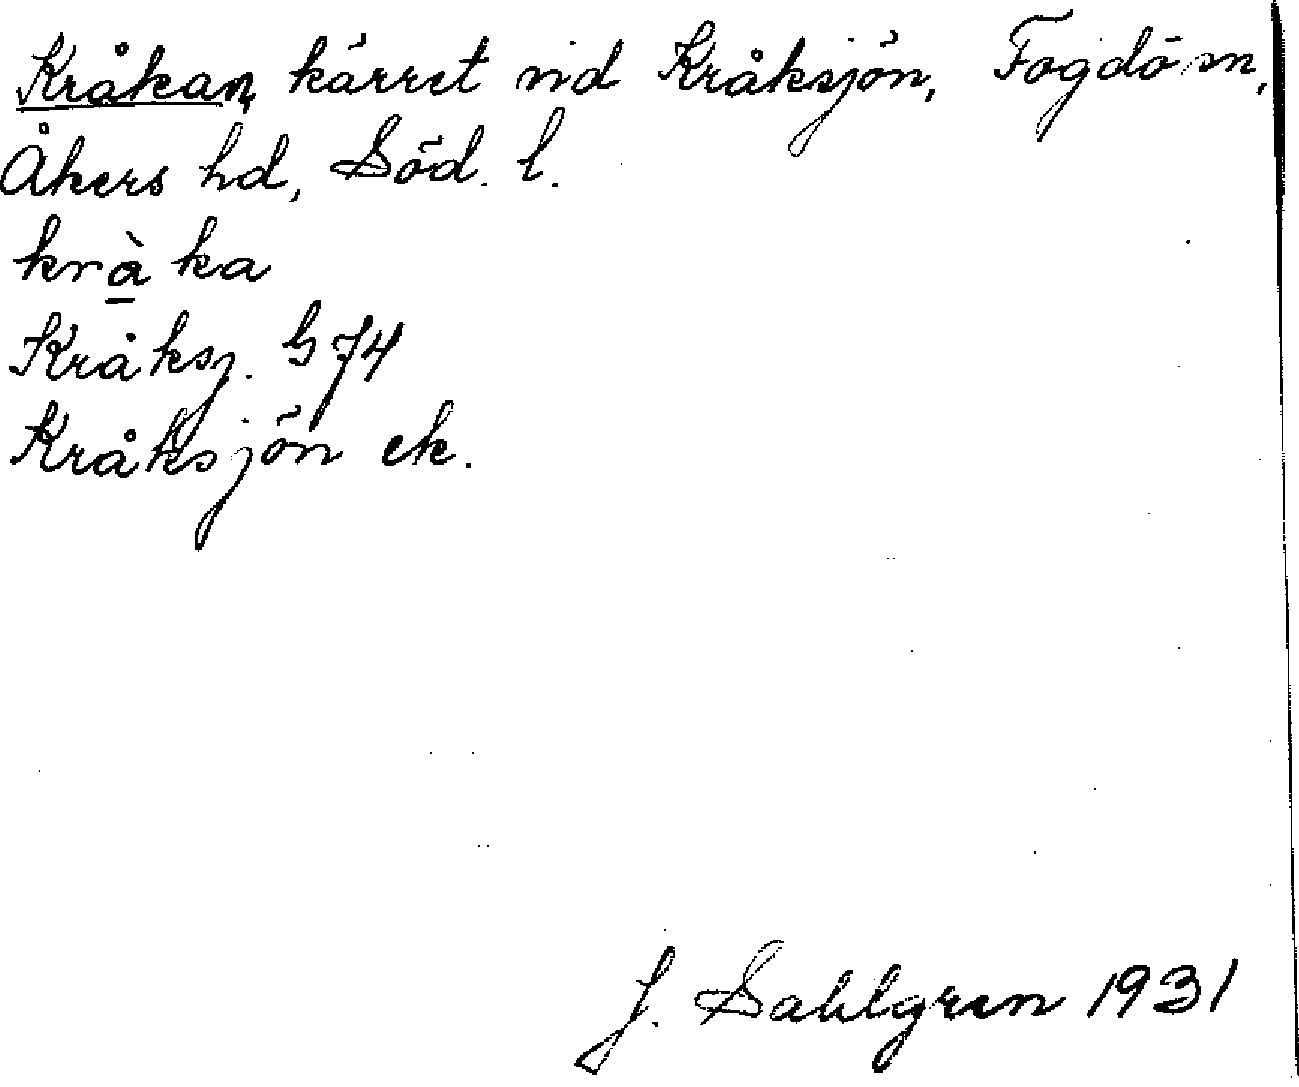 Kråkan, kärret vid Kråksjön, Fogdö sn,
Åkers hd, Söd. l.
krà̱ka
Kråksj. G 74
Kråksjön ek.
J. Sahlgren 1931